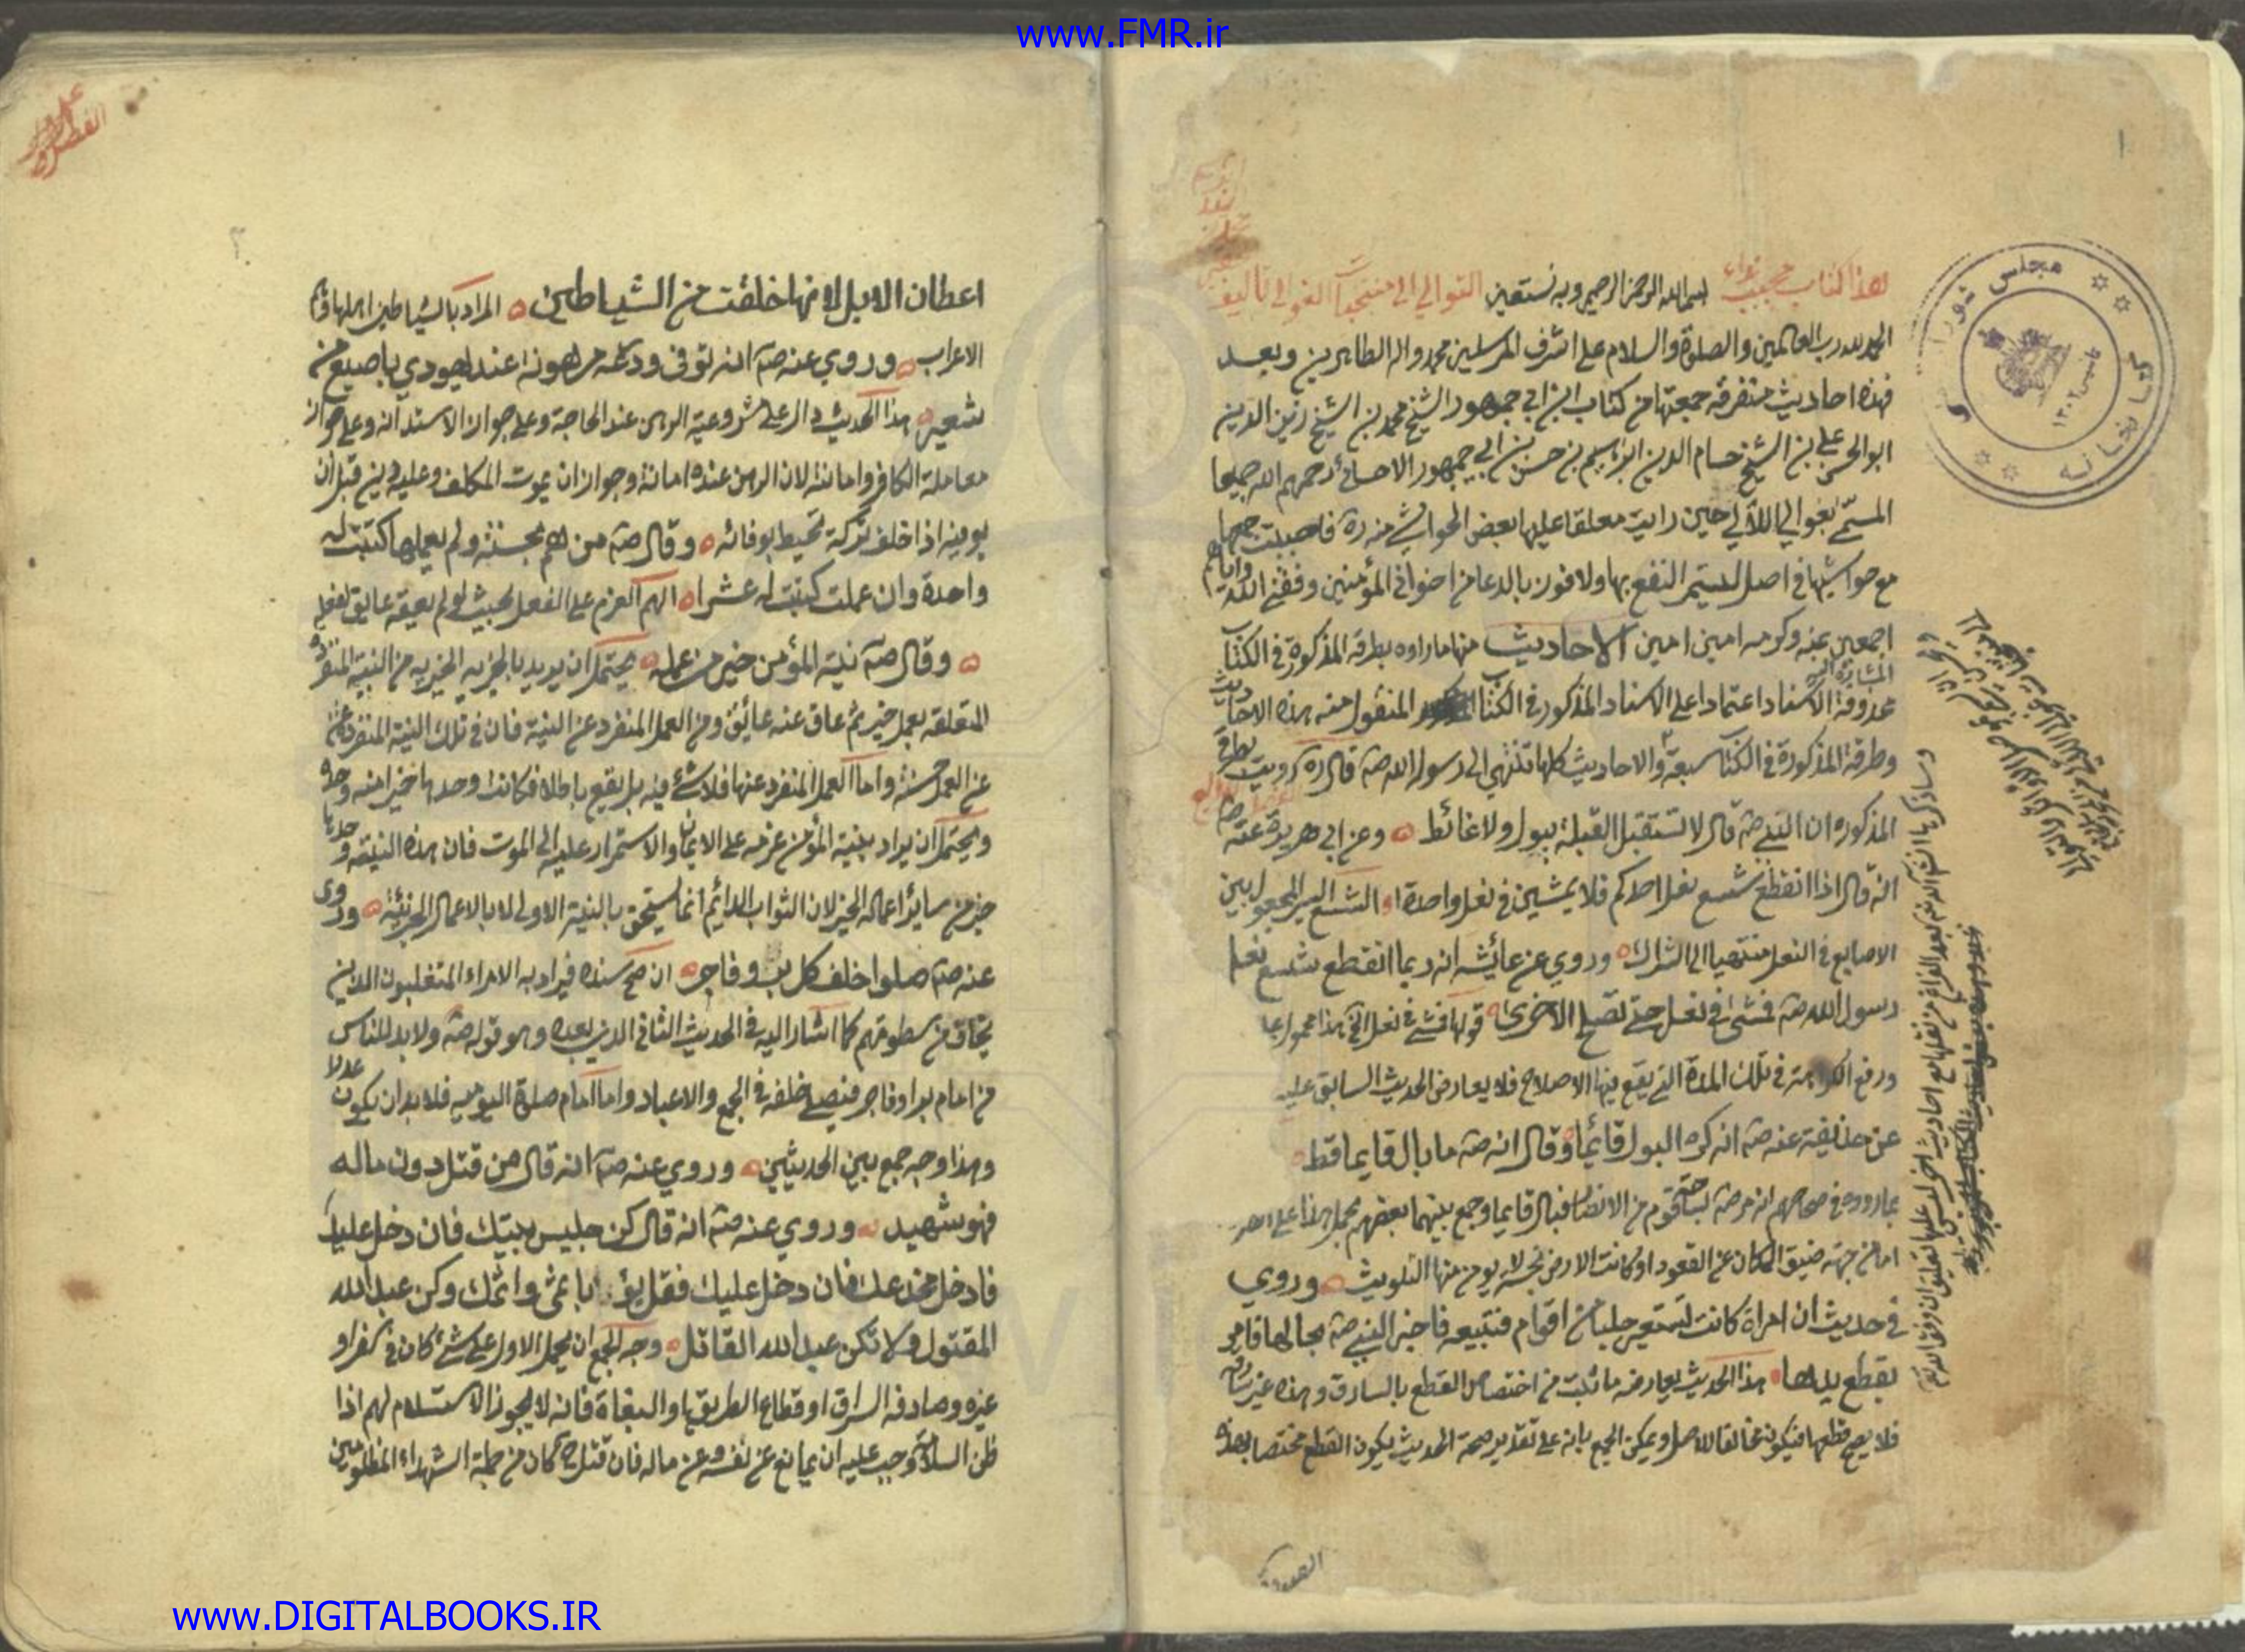 www.FMR.ir
١
هذا كتاب
بسم الله الرحمن الرحيم وبه نستعين
التوالي الى منتخبات الغوالي تاليف
الحمد لله رب العالمين والصلوة والسلام على اشرف المرسلين محمد واله الطاهرين وبعد
فهذه احاديث متفرقه جمعتها من كتاب ابن ابي جمهور الشيخ محمد بن الشيخ زين الدين
ابو الحسن علي بن الشيخ حسام الدين ابراهيم بن حسن بن ابي جمهور الاحسائي رحمهم الله جميعا
المسمى بغوالي اللآلي حين رايت معلقا عليها بعض الحواشي منه ره فاحببت جمعها
مع حواشيها في اصل ليستمر النفع بها ولافوز بالدعا من اخواني المؤمنين وفقني الله واياهم
اجمعين بمنه وكرمه امين امين الاحاديث منها ما رواه بطرقه المذكورة في الكتاب
المشار اليه
محذوفة الاسناد اعتمادا على الاسناد المذكور في الكتاب المنقول منه هذه الاحاديث
وطرقه المذكورة في الكتاب سبعة والاحاديث كلها تنتهي الى رسول الله صه قال ره رويت بطرقي
المذكوره ان النبي صه قال لا تستقبل القبلة ببول ولا غائط وعن ابي هريرة عنه صه
انه قال اذا انقطع شسع نعل احدكم فلا يمشين في نعل واحدة الشسع السير المجعول بين
الاصابع في النعل منتهيا الى الشراك وروي عن عائشه انه ربما انقطع شسع نعل
رسول الله صه فمشى في نعل حتى تصلح الاخرى قولها فمشى في نعل الخ هذا محمول على
ورفع الكراهة في تلك المدة التي يقع فيها الاصلاح فلا يعارض الحديث السابق عليه
عن حذيفة عنه صه انه كره البول قائما وقال انه صه ما بال قايما قط
بما رووه في صحاحهم انه مر صه بسباخة قوم من الانصار فبال قايما وجمع بينهما بعضهم بحمل هذا على
اما من جهة ضيق المكان عن القعود او كانت الارض نجسة لا يومن منها التلويث وروي
في حديث ان امراة كانت تستعير حليا من اقوام فتبيعه فاخبر النبي صه بحالها فامر
بقطع يدها هذا الحديث يعارضه ما ثبت من اختصاص القطع بالسارق وهذه غير سارقه
فلا يصح قطعها فيكون مخالفا للاصل ويمكن الجمع بانه على تقدير صحة الحديث يكون القطع مختصا بهذه
مجلس شورا
كتابخانه
٢
اعطان الابل لانها خلقت من الشياطين المراد بالشياطين اهلها
الاعراب وروي عنه صه انه توفى ودرعه مرهونة عند يهودي باصيع من
شعير هذا الحديث دال على مشروعية الرهن عند الحاجة وعلى جواز الاستدانه وعلى جواز
معاملة الكافر وامانته لان الرهن عنده امانة وجواز ان يموت المكلف وعليه دين قبل ان
يوفيه اذا خلف تركة تحيط بوفائه وقال صه من هم بحسنة ولم يعملها كتبت له
واحدة وان عملت كتبت له عشرا الهم العزم على الفعل بحيث لو لم يعقه عايق لفعله
وقال صه نية المؤمن خير من عمله يحتمل ان يريد بالخيريه الخيريه من النية المنفردة
المتعلقه بعمل خير ثم عاق عنه عائق ومن العمل المنفرد عن النية فان في تلك النية المنفردة
عن العمل حسنة واما العمل المنفرد عنها فلا شئ فيه بل يقع باطلا فكانت وحدها خيرا منه وحده
ويحتمل ان يراد بنية المؤمن عزمه على الايمان والاستمرار عليه الى الموت فان هذه النية وحدها
خير من سائر اعماله الخير لان الثواب الدائم انما يستحق بالنية الاولى لا بالاعمال الجزئية وروى
عنه صه صلوا خلف كل بر وفاجر ان صح سنده فيراد به الامراء المتغلبون الذين
يخاف من سطوتهم كما اشار اليه في الحديث الثاني الذي بعده وهو قوله صه ولا بد للناس
من امام بر او فاجر فيصلى خلفه في الجمع والاعياد واما امام صلوة اليوميه فلا بد ان يكون عدلا
وهذا وجه جمع بين الحديثين وروي عنه صه انه قال من قتل دون ماله
فهو شهيد وروي عنه صه انه قال كن جليس بيتك فان دخل عليك
فادخل مخدعك فان دخل عليك فقل بؤ باثمي واثمك وكن عبد الله
المقتول ولا تكن عبد الله القاتل وجه الجمع ان يحمل الاول على شئ كان في سفر او
غيره وصادفه السراق او قطاع الطريق او البغاة فانه لا يجوز الاستسلام لهم اذا
ظن السلامة وجب عليه ان يمانع عن نفسه وعن ماله فان قتل ح كان من جملة الشهداء المظلومين
www.DIGITALBOOKS.IR